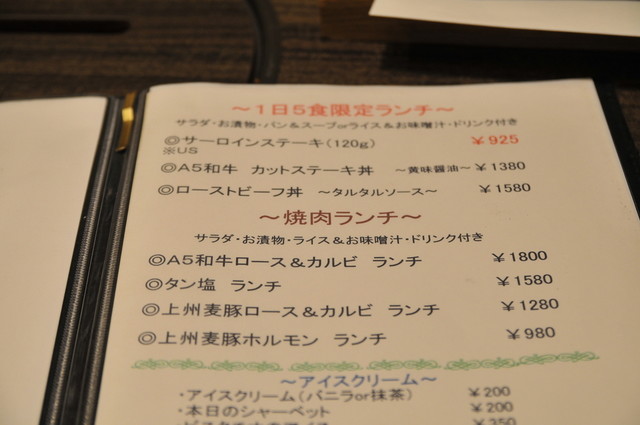 ～1日5食限定ランチ～
サラダ・お漬物・パン＆スープorライス＆お味噌汁・ドリンク付き
◎サーロインステーキ(120g) ¥925
※US
◎A5和牛 カットステーキ丼 ～黄味醤油～ ¥1380
◎ローストビーフ丼 ～タルタルソース～ ¥1580
～焼肉ランチ～
サラダ・お漬物・ライス＆お味噌汁・ドリンク付き
◎A5和牛ロース＆カルビ ランチ ¥1800
◎タン塩 ランチ ¥1580
◎上州麦豚ロース＆カルビ ランチ ¥1280
◎上州麦豚ホルモン ランチ ¥980
～アイスクリーム～
・アイスクリーム(バニラor抹茶) ¥200
・本日のシャーベット ¥200
¥350